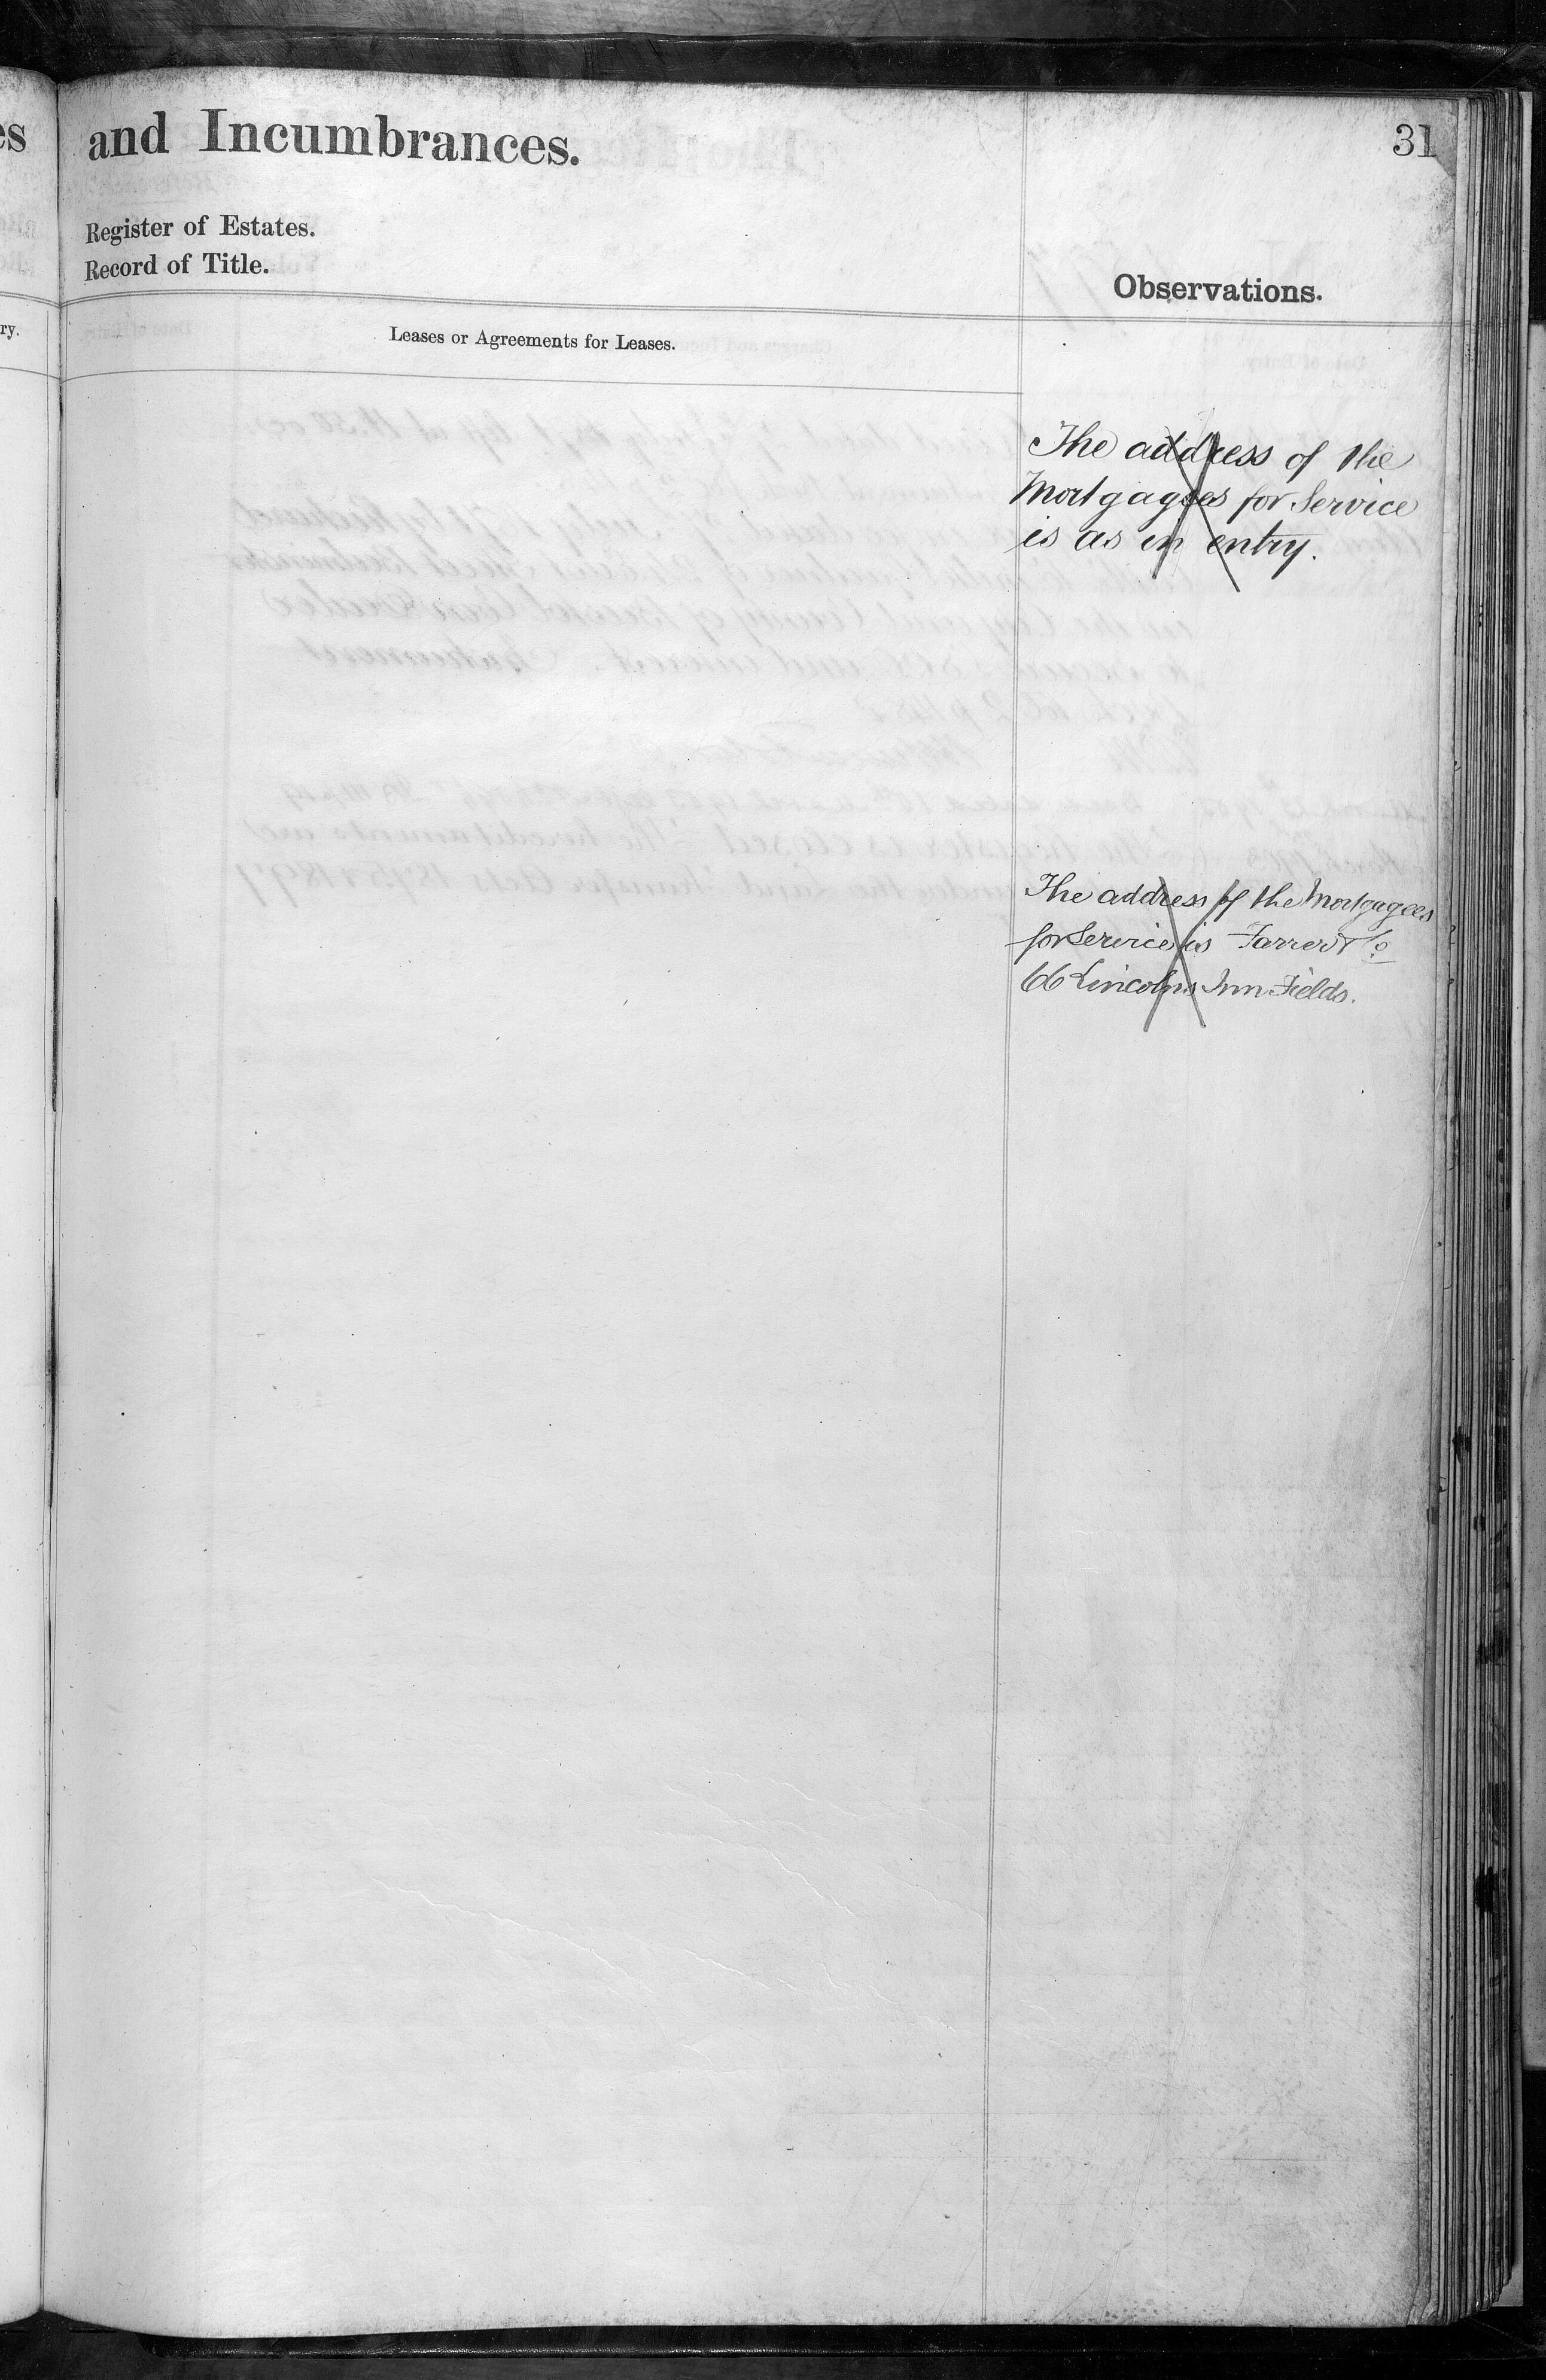 es
and Incumbrances.
31
Register of Estates.
Record of Title.
Observations.
ry.
Leases or Agreements for Leases.
The address of the
Mortgagees for Service
is as in entry.
The address of the Mortgagees
for Service is Farrer & Co
66 Lincolns Inn Fields.